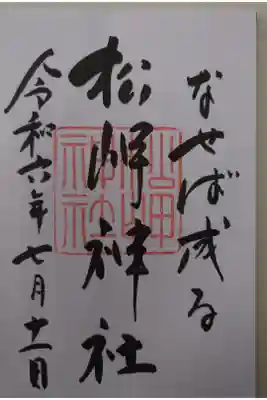 なせば成る
松岬神社
令和六年七月十一日